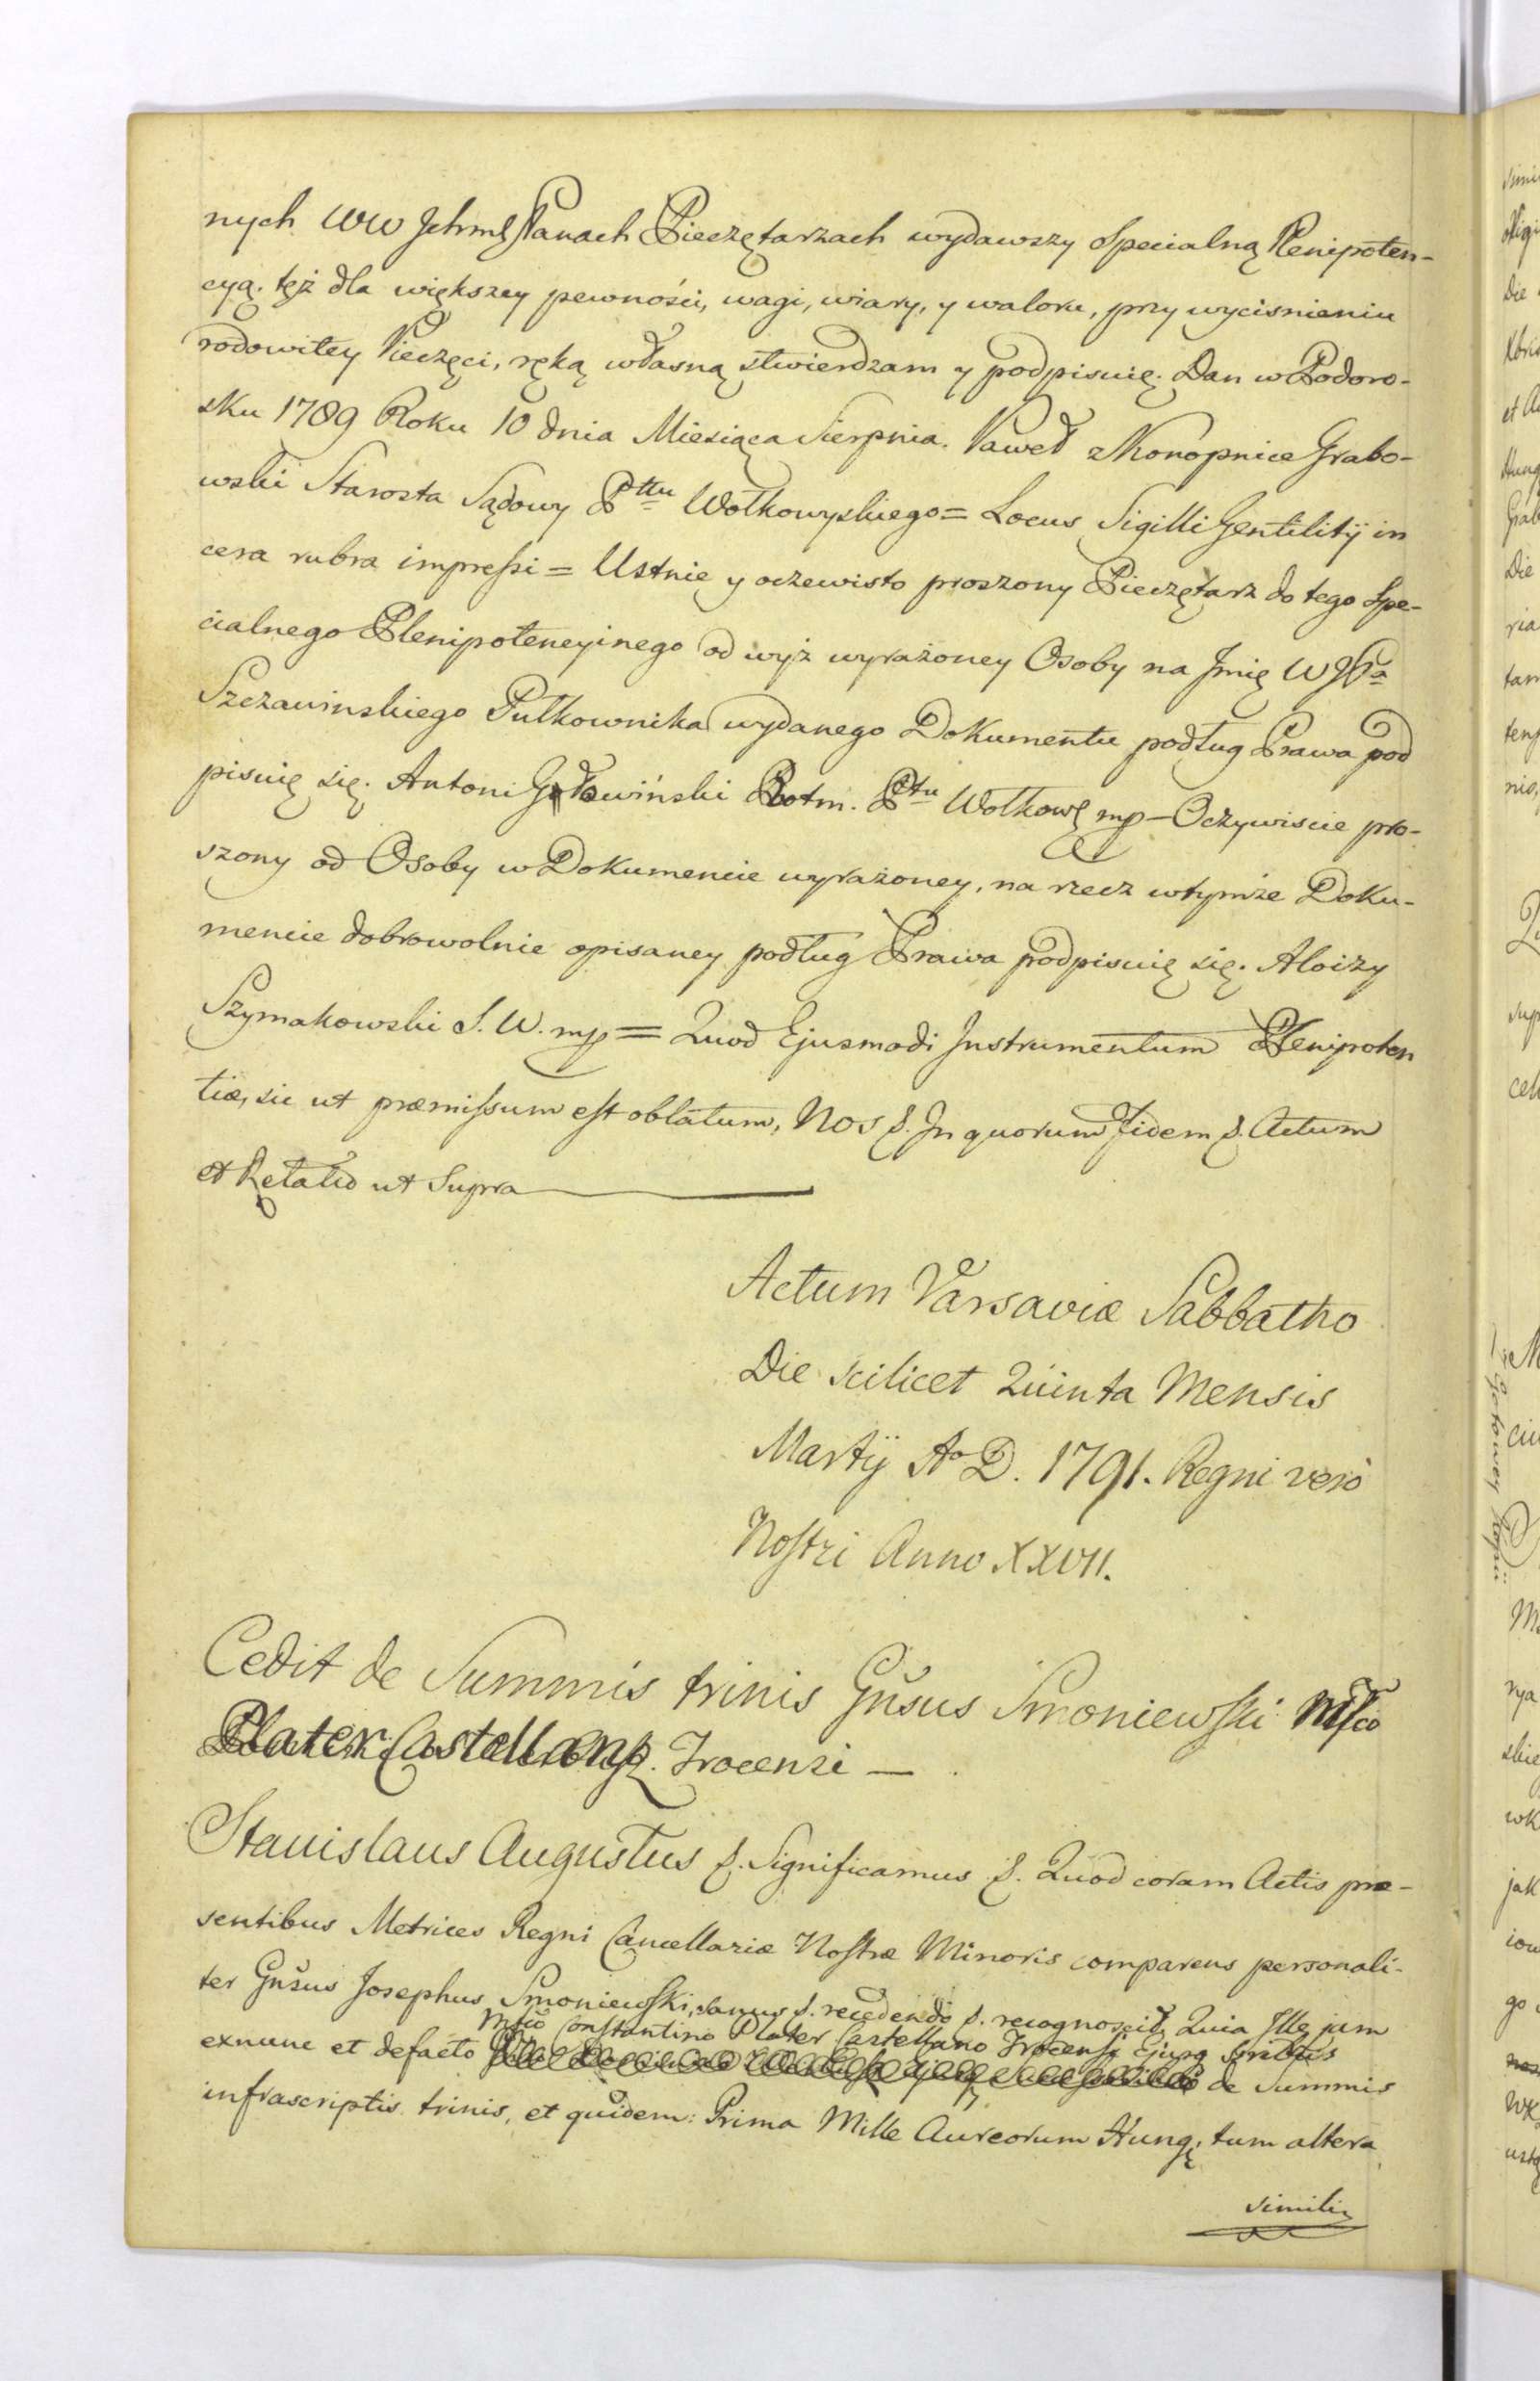 nych WW Jchmę Panach Pieczętarzach wydawszy Specialną Plenipoten-
cyą. tęż dla większey pewności, wagi, wiary, y waloru, przy wycisnieniu
rodowitey Pieczęci, ręką własną stwierdzam y podpisuię. Dan w Podoro-
sku 1789 Roku 10 dnia Miesiąca Sierpnia. Paweł z Konopnice Grabo-
wski Starosta Sądowy Pttu Wołkowyskiego = Locus Sigilli Gentilitij in
cera rubra impreſsi = Ustnie y oczewisto proszony Pieczętarz do tego Spe-
cialnego Plenipotencyinego od wyż wyrażoney Osoby na Jmię WJPa
Szczawinskiego Pułkownika wydanego Dokumentu podług Prawa pod
pisuię się. Antoni Gołowiński Rotm. Pttu Wołkowę mp – Oczywiscie pro-
szony od Osoby w Dokumencie wyrażoney, na rzecz wtymże Doku-
mencie dobrowolnie opisaney podług Prawa podpisuię się. Aloizy
Szymakowski S. W. mp = Quod Ejusmodi Instrumentum Plenipoten
tiæ, sic ut præmiſsum eſt oblatum, Nos &. In quorum Fidem &. Actum
et Relatio ut Supra
Actum Varsaviæ Sabbatho
Die scilicet Quinta Mensis
Martij Ao D. 1791. Regni verò
Noſtri Anno XXVII.
Cedit de Summis trinis Gn̄sus Smoniewſki Mſco
Plater Castellano Trocensi —
Stanislaus Augustus &. Significamus &. Quod coram Actis præ-
sentibus Metrices Regni Cancellariæ Noſtræ Minoris comparens personali-
ter Gn̄sus Josephus Smoniewſki, sanus &. recedendo &. recognoscit, Quia Ille jam
Mſco Conſtantino Plater Castellano Trocensi Ejusq
exnunc et defacto de Summis
infrascriptis trinis, et quidem: Prima Mille Aureorum Hungę. tum altera
simili